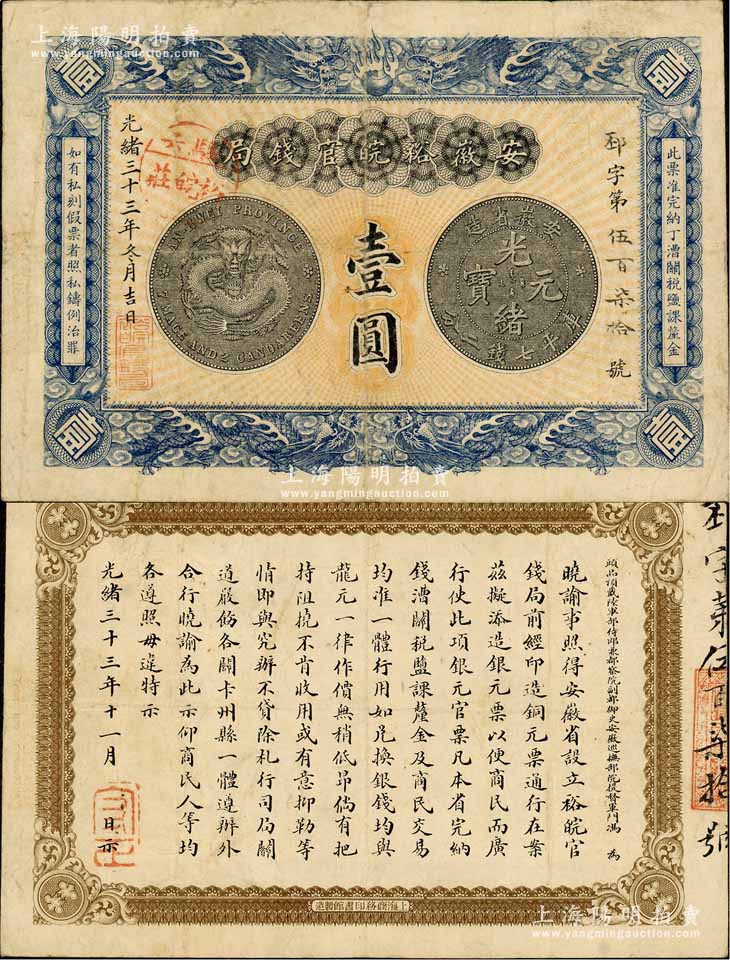 上海陽明拍賣
www.yangmingauction.com
壹
壹
安徽裕皖官錢局
此票准完納丁漕關稅鹽課釐金
邳字第伍百柒拾號
安徽省造
光緒元寶
庫平七錢二分
壹圓
AN HUEI PROVINCE
7 MACE AND 2 CANDAREENS
裕皖莊
光緒三十三年冬月吉日
如有私刻假票者照私鑄例治罪
壹
壹
上海陽明拍賣
www.yangmingauction.com
字第伍百柒拾號
頭品頂戴陸軍部侍郎兼都察院副都御史安徽巡撫部院提督軍門馮 為
曉諭事照得安徽省設立裕皖官
錢局前經印造銅元票通行在案
茲擬添造銀元票以便商民而廣
行使此項銀元官票凡本省完納
錢漕關稅鹽課釐金及商民交易
均准一體行用如兌換銀錢均與
龍元一律作價無稍低昂倘有把
持阻撓不肯收用或有意抑勒等
情即與究辦不貸除札行司局關
道嚴飭各關卡州縣一體遵辦外
合行曉諭為此示仰商民人等均
各遵照毋違特示
光緒三十三年十一月 日示
上海商務印書館製造
上海陽明拍賣
www.yangmingauction.com